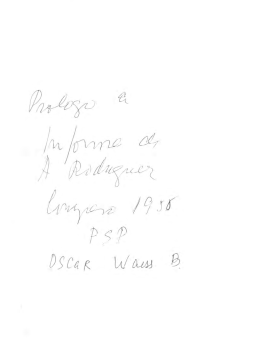 Prologo a
Informe de
A Rodriguez
Congreso 1958
PSP
OSCAR Waiss B